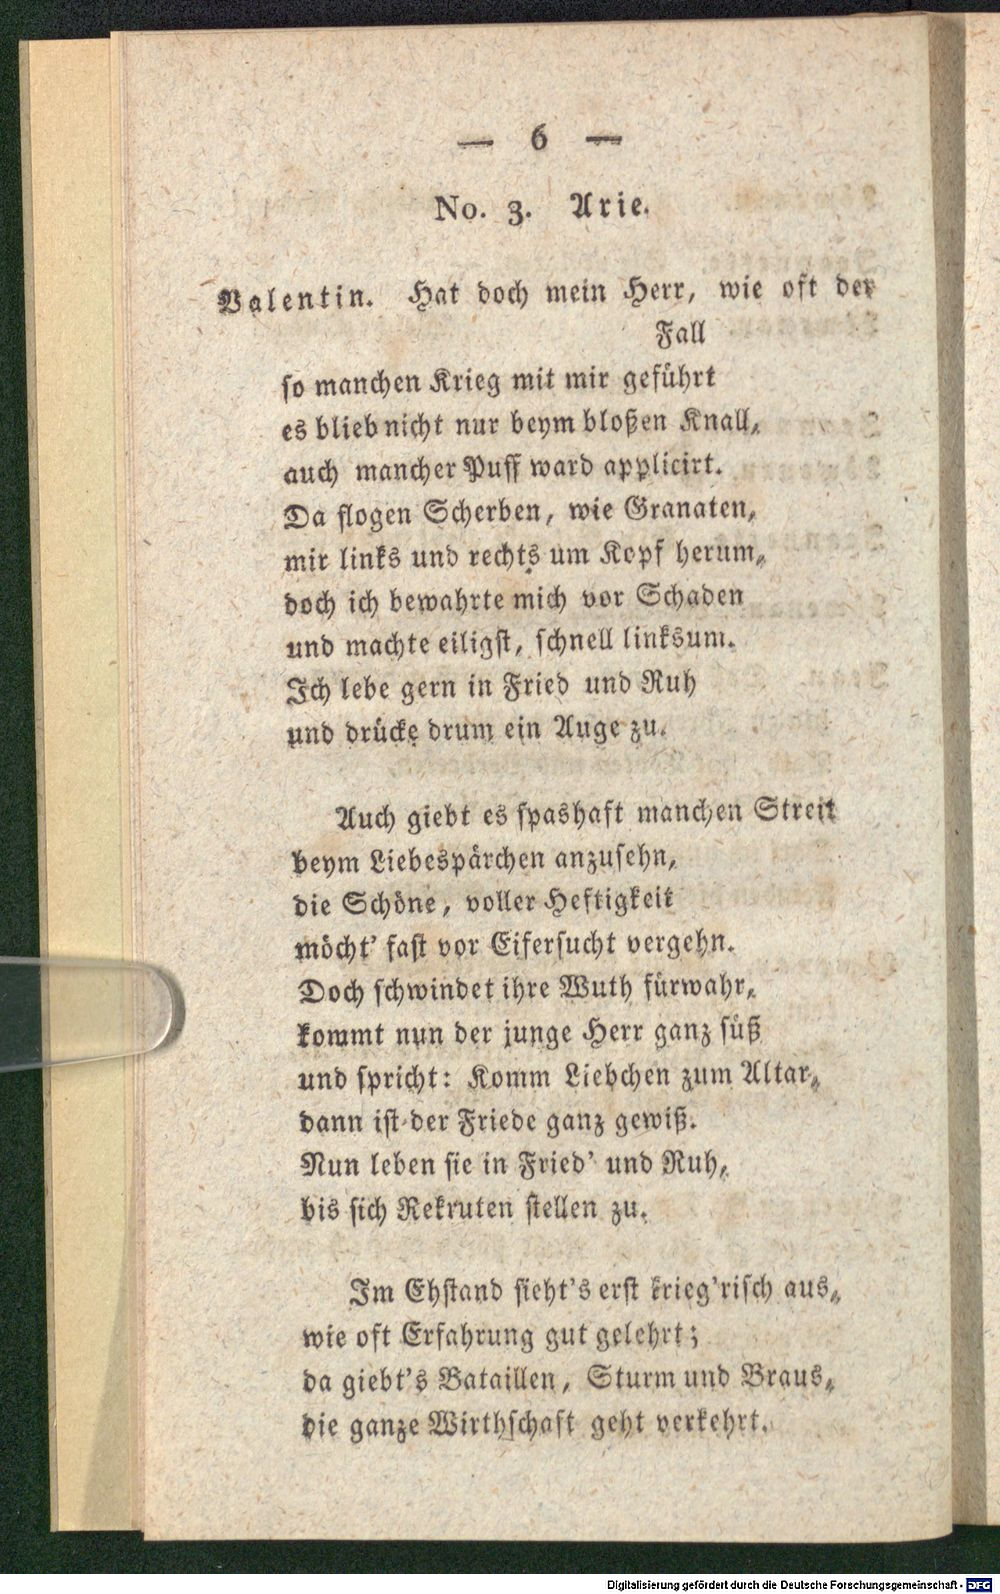 — 6 —
No. 3. Arie.
Valentin. Hat doch mein Herr, wie oft der
Fall
so manchen Krieg mit mir geführt
es blieb nicht nur beym bloßen Knall,
auch mancher Puff ward applicirt.
Da flogen Scherben, wie Granaten,
mir links und rechts um Kopf herum,
doch ich bewahrte mich vor Schaden
und machte eiligst, schnell linksum.
Ich lebe gern in Fried und Ruh
und drücke drum ein Auge zu.
Auch giebt es spashaft manchen Streit
beym Liebespärchen anzusehn,
die Schöne, voller Heftigkeit
möcht' fast vor Eifersucht vergehn.
Doch schwindet ihre Wuth fürwahr,
kommt nun der junge Herr ganz süß
und spricht: Komm Liebchen zum Altar,
dann ist der Friede ganz gewiß.
Nun leben sie in Fried' und Ruh,
bis sich Rekruten stellen zu.
Im Ehstand sieht's erst krieg'risch aus,
wie oft Erfahrung gut gelehrt;
da giebt's Bataillen, Sturm und Braus,
die ganze Wirthschaft geht verkehrt.
Digitalisierung gefördert durch die Deutsche Forschungsgemeinschaft - DFG